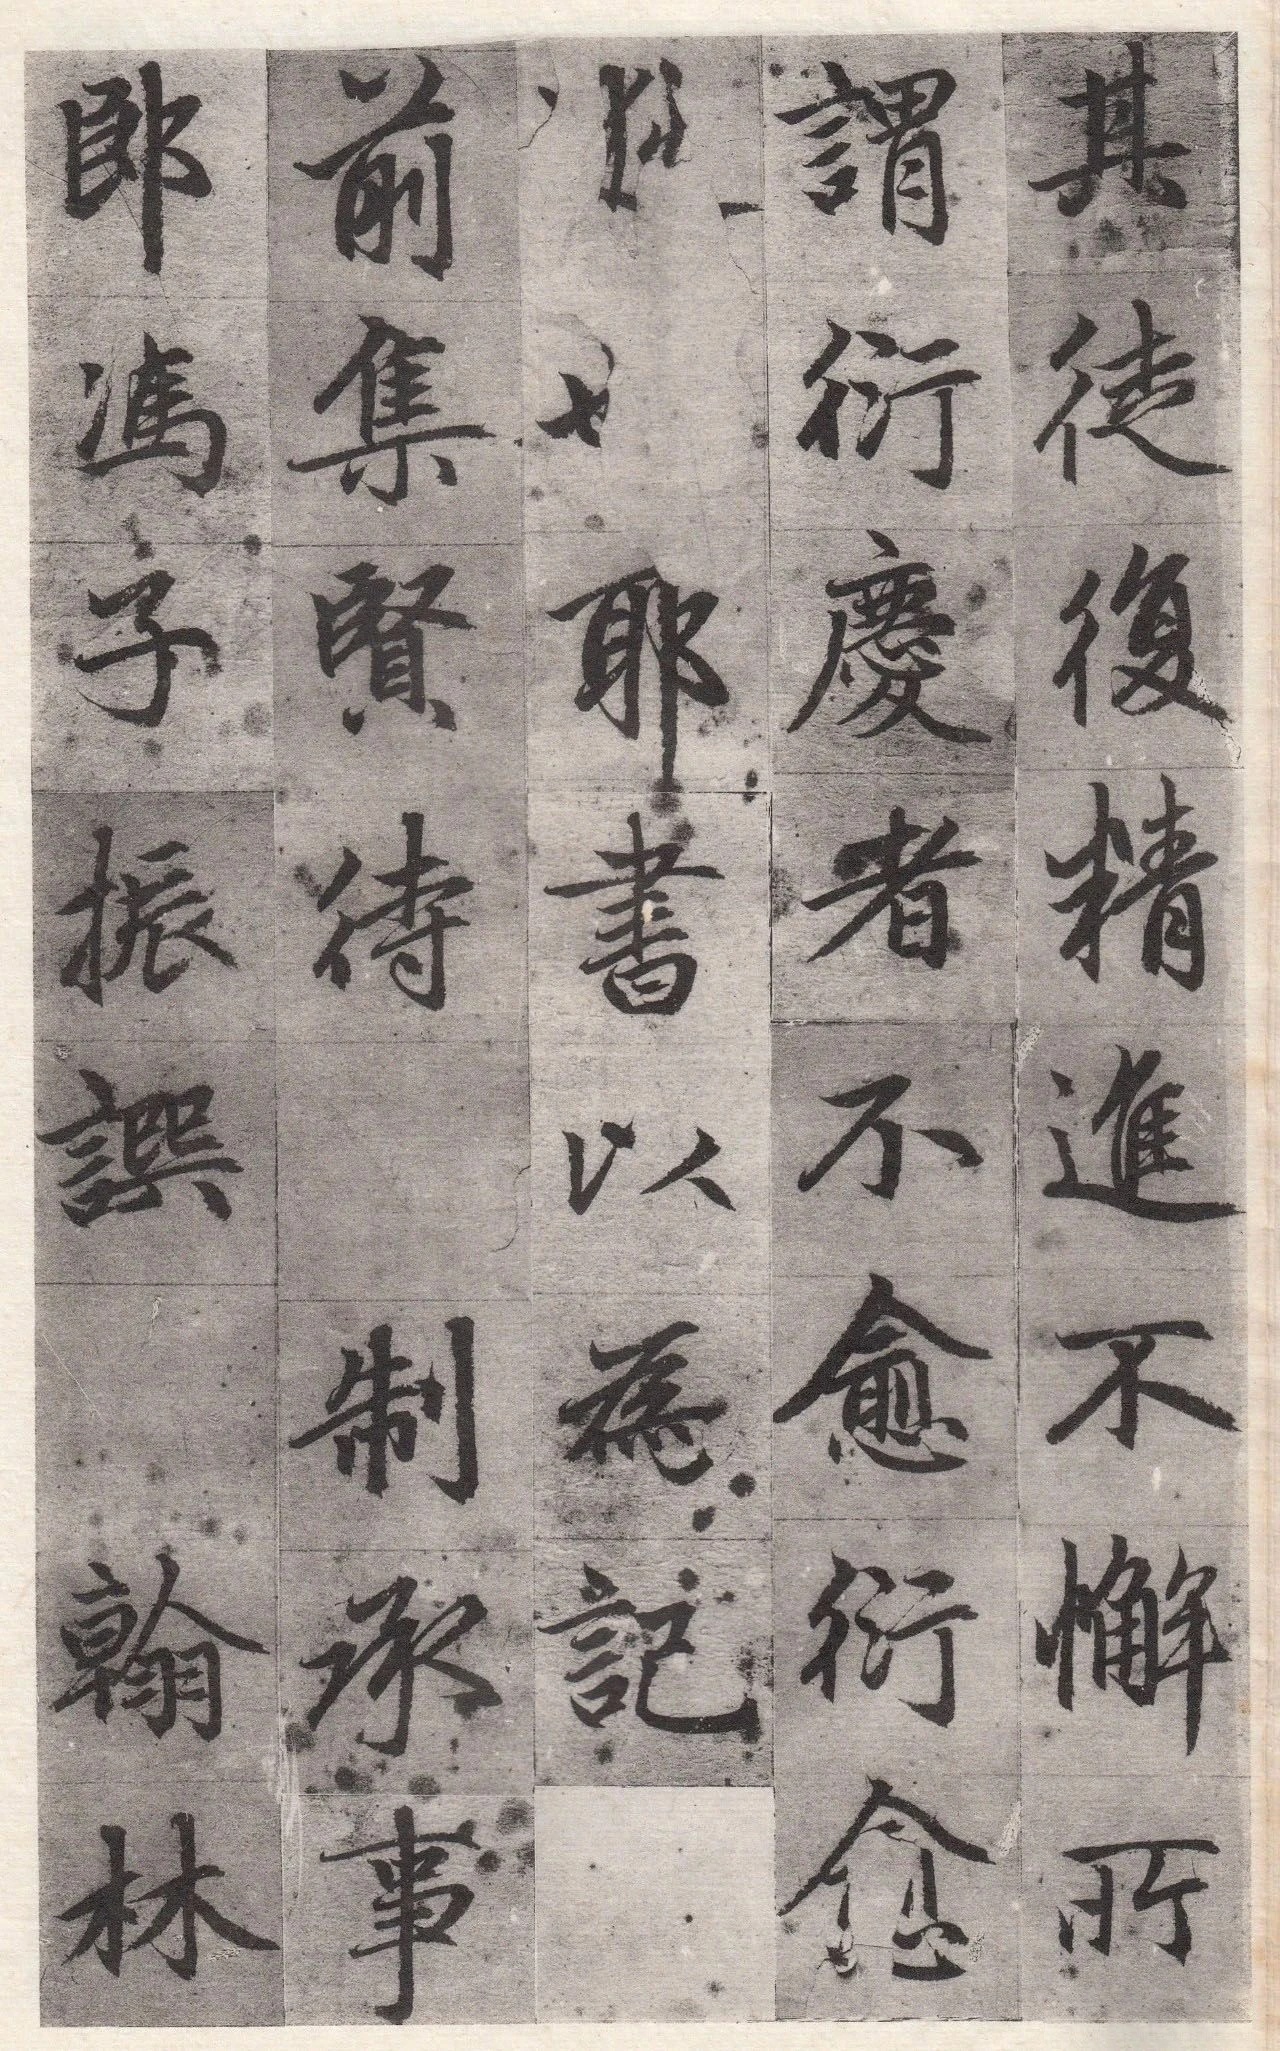 其徒復精進不懈所
謂衍慶者不愈衍愈
耶書以為記
前集賢待制承事
郎馮子振譔翰林